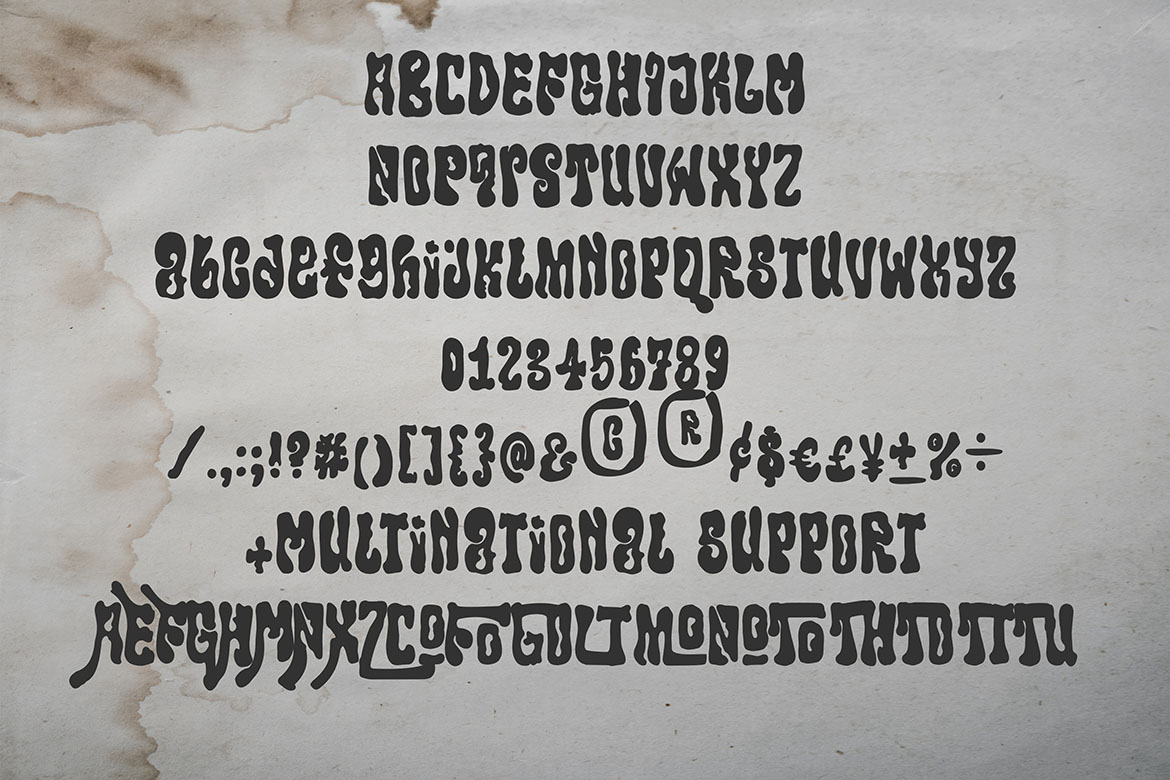 ABCDEFGHIJKLM
NOPqrSTUVWXYZ
abcdefghijKLMNOPQRSTUVWXYZ
0123456789
/.,:;!?#()[]{}@&©®¢$€£¥±%÷
+MULTiNaTiONaL SUPPORT